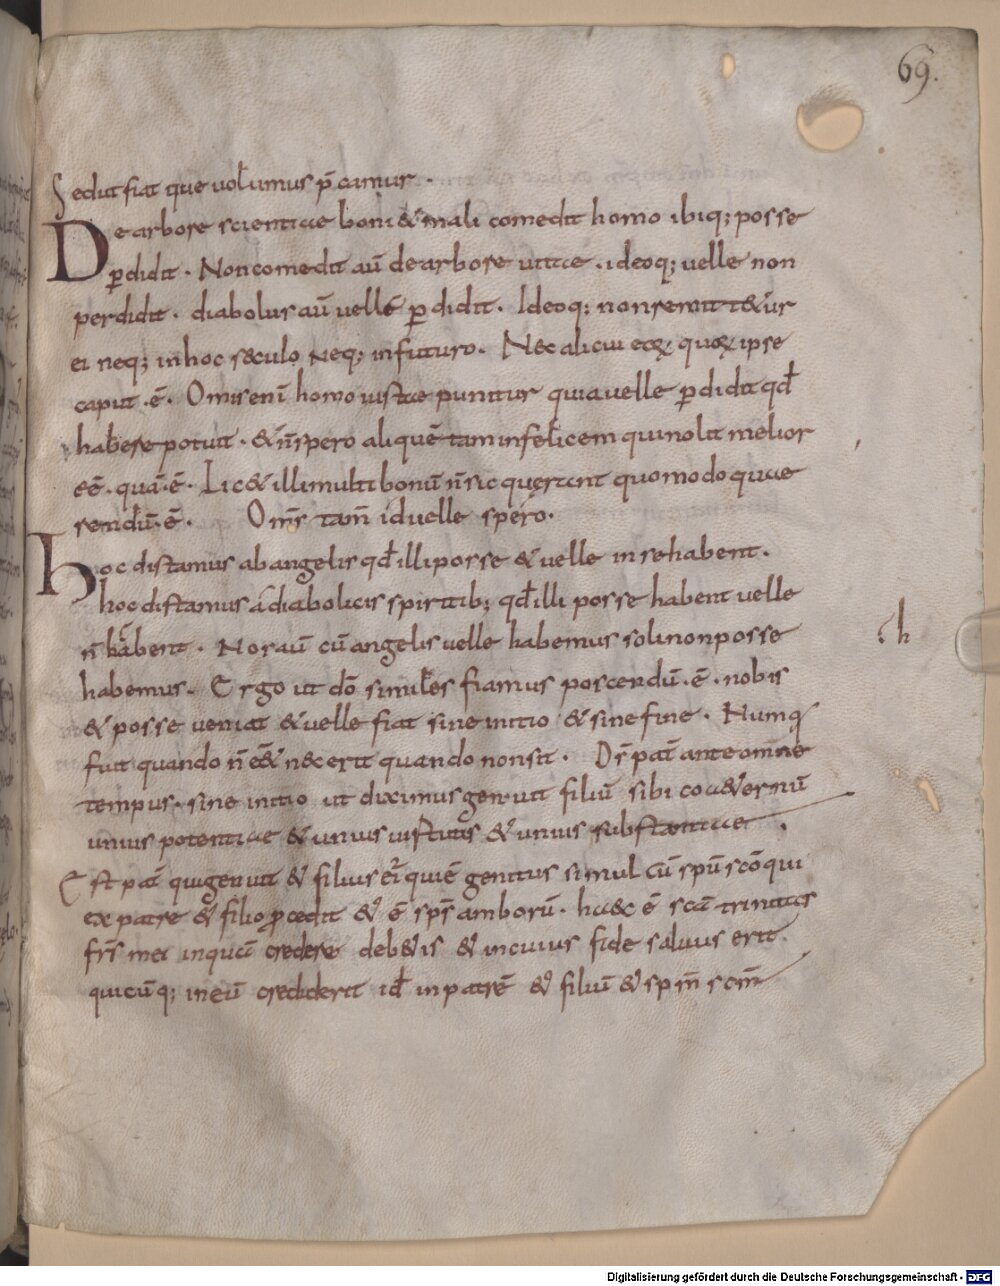 69.
Sed ut fiat que uolumus p̄camur.
De arbore scientiae boni & mali comedit homo ibiq; posse
ꝑdidit. Non comedit aū de arbore uitae. ideoq; uelle non
perdidit. diabolus aū uelle ꝑdidit. Ideoq; non remittet&ur
ei neq; in hoc seculo neq; in futuro. Nec alicui eoꝝ quoꝝ ipse
caput .ē. O miseri homo iustae punitur quia uelle ꝑdidit qđ
habere potuit. & n̄ spero aliquē tam infelicem qui nolit melior
eē. quā .ē. Lic& illi multi bonū n̄ sic querant quomodo quae
rendū .ē. Om̄s tam̄ id uelle spero.
Hoc distamus ab angelis qđ illi posse & uelle in se habent.
hoc distamus a diabolicis spiritib; qđ illi posse habent uelle
n̄ habent. Nos aū cū angelis uelle habemus soli non posse
habemus. Ergo ut dō similes fiamus poscendū .ē. nobis
& posse ueniat & uelle fiat sine initio & sine fine. Numq
fuit quando n̄ ess& nec erit quando non sit. Ds̄ pat̄ ante omne
tempus. sine initio ut diximus genuit filiū sibi coa&ernū
unius potentiae & unius uirtutis & unius substantiae.
Est pat̄ qui genuit & filius ei qui ē genitus simul cū spū scō qui
ex patre & filio ꝓcedit & ē sps̄ amborū. haec ē scā trinitas
frs̄ mei in quā credere deb&is & in cuius fide saluus erit.
quicūq; in eū crediderit id̄ in patrē & filiū & spm̄ scm̄
Digitalisierung gefördert durch die Deutsche Forschungsgemeinschaft - DFG